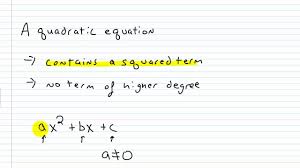 A quadratic equation
→ contains a squared term
→ no term of higher degree
ax² + bx + c
a≠0